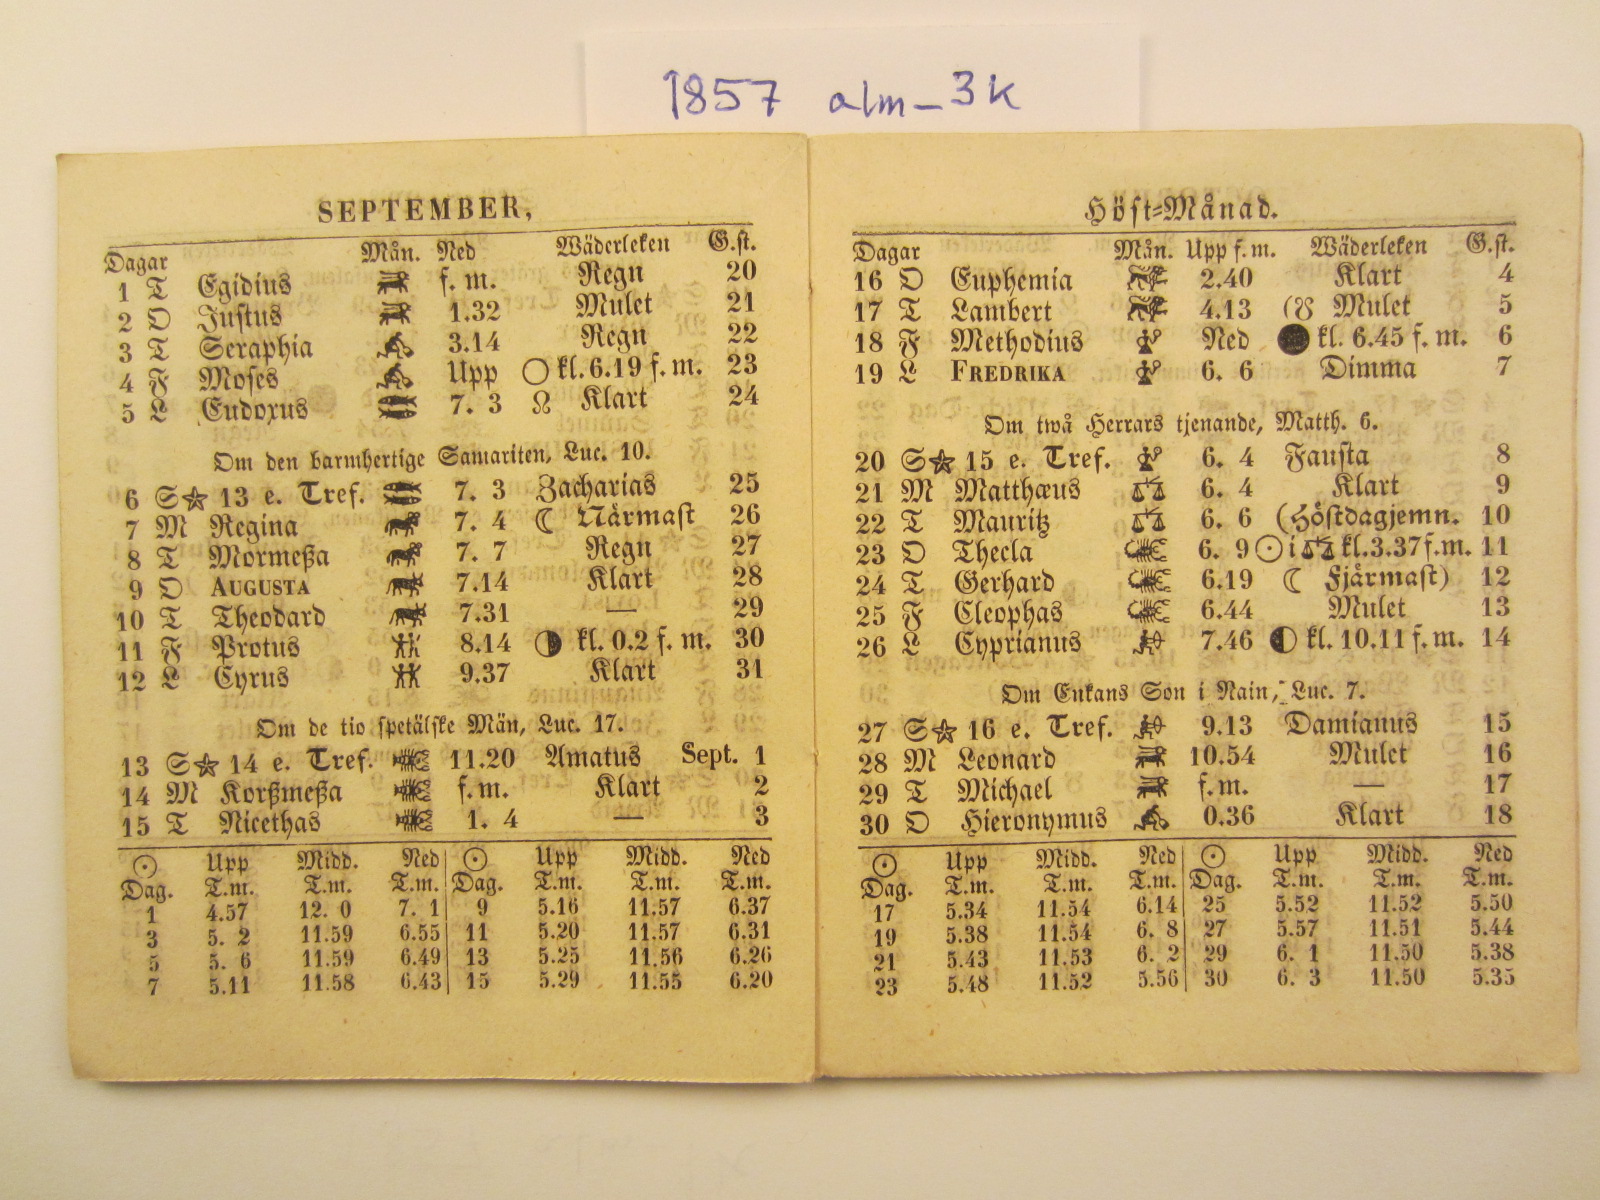 1857 alm_3k
SEPTEMBER,
Dagar Mån. Ned Wäderleken G.st.
1 T Egidius f. m. Regn 20
2 O Justus 1.32 Mulet 21
3 T Seraphia 3.14 Regn 22
4 F Moses Upp ○ kl. 6.19 f. m. 23
5 L Eudoxus 7. 3 ☊ Klart 24
Om den barmhertige Samariten, Luc. 10.
6 S☆ 13 e. Tref. 7. 3 Zacharias 25
7 M Regina 7. 4 ☾ Närmast 26
8 T Mormeßa 7. 7 Regn 27
9 O AUGUSTA 7.14 Klart 28
10 T Theodard 7.31 — 29
11 F Protus 8.14 ◑ kl. 0.2 f. m. 30
12 L Cyrus 9.37 Klart 31
Om de tio spetälske Män, Luc. 17.
13 S☆ 14 e. Tref. 11.20 Amatus Sept. 1
14 M Korßmeßa f. m. Klart 2
15 T Nicethas 1. 4 — 3
☉ Upp Midd. Ned ☉ Upp Midd. Ned
Dag. T.m. T.m. T.m. Dag. T.m. T.m. T.m.
1 4.57 12. 0 7. 1 9 5.16 11.57 6.37
3 5. 2 11.59 6.55 11 5.20 11.57 6.31
5 5. 6 11.59 6.49 13 5.25 11.56 6.26
7 5.11 11.58 6.43 15 5.29 11.55 6.20
Höst=Månad.
Dagar Mån. Upp f. m. Wäderleken G.st.
16 O Euphemia 2.40 Klart 4
17 T Lambert 4.13 (☋ Mulet 5
18 F Methodius Ned ● kl. 6.45 f. m. 6
19 L FREDRIKA 6. 6 Dimma 7
Om twå Herrars tjenande, Matth. 6.
20 S☆ 15 e. Tref. 6. 4 Fausta 8
21 M Matthæus 6. 4 Klart 9
22 T Mauritz 6. 6 (Höstdagjemn. 10
23 O Thecla 6. 9 ☉ i ♎ kl. 3.37 f. m. 11
24 T Gerhard 6.19 ☾ Fjärmast) 12
25 F Cleophas 6.44 Mulet 13
26 L Cyprianus 7.46 ◐ kl. 10.11 f. m. 14
Om Enkans Son i Nain, Luc. 7.
27 S☆ 16 e. Tref. 9.13 Damianus 15
28 M Leonard 10.54 Mulet 16
29 T Michael f. m. — 17
30 O Hieronymus 0.36 Klart 18
☉ Upp Midd. Ned ☉ Upp Midd. Ned
Dag. T.m. T.m. T.m. Dag. T.m. T.m. T.m.
17 5.34 11.54 6.14 25 5.52 11.52 5.50
19 5.38 11.54 6. 8 27 5.57 11.51 5.44
21 5.43 11.53 6. 2 29 6. 1 11.50 5.38
23 5.48 11.52 5.56 30 6. 3 11.50 5.35